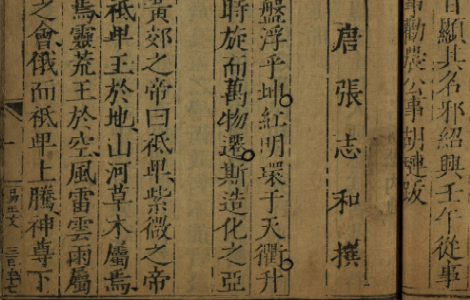 顯其名邪紹興壬午從事
事勸農公事胡璉跋
唐張志和撰
盤浮乎坤紅明環于天衢升
時旋而萬物遷斯造化之亞
黃郊之帝曰祗卑紫微之帝
祗卑王於地山河草木屬焉
焉靈荒王於空風雷雲雨屬
之會俄而祗卑上騰神尊下